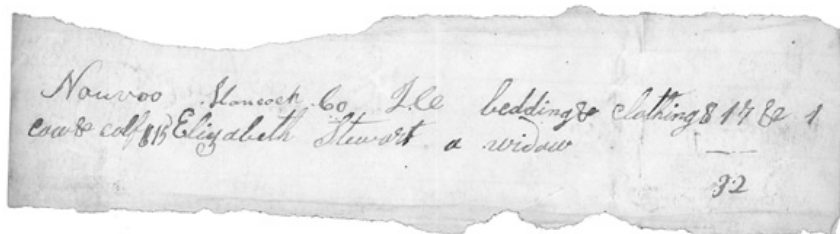 Nouvoo Hancock Co Ill bedding & clothing $ 17 & 1
cow & calf $15 Elizabeth Stewart a widow
32